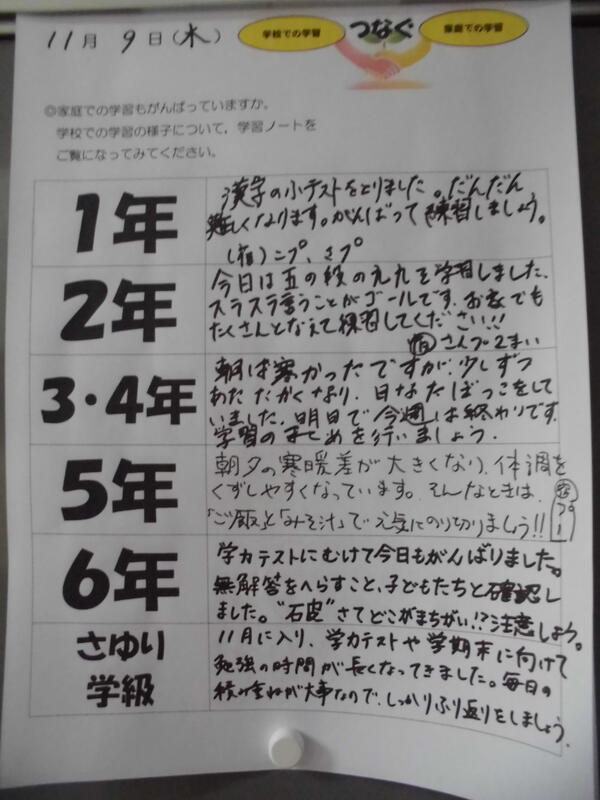 11月 9日(木)
学校での学習 つなぐ 家庭での学習
◎家庭での学習もがんばっていますか。
学校での学習の様子について，学習ノートを
ご覧になってみてください。
1年
漢字の小テストをとりました。だんだん
難しくなります。がんばって練習しましょう。
(宿)こプ、さプ
2年
今日は五の段の九九を学習しました。
スラスラ言うことがゴールです。お家でも
たくさんとなえて練習してください!!
宿さんプ2まい
3・4年
朝は寒かったですが、少しずつ
あたたかくなり、日なたぼっこをして
いました。明日で今週は終わりです。
学習のまとめを行いましょう。
5年
朝夕の寒暖差が大きくなり、体調を
くずしやすくなっています。そんなときは、
「ご飯」と「みそ汁」で元気にのり切りましょう!!
6年
学力テストにむけて今日もがんばりました。
無解答をへらすこと、子どもたちと確認し
ました。"石皮"さてどこがまちがい!?注意しよう。
さゆり
学級
11月に入り、学力テストや学期末に向けて
勉強の時間が長くなってきました。毎日の
積み重ねが大事なので、しっかりふり返りをしましょう。